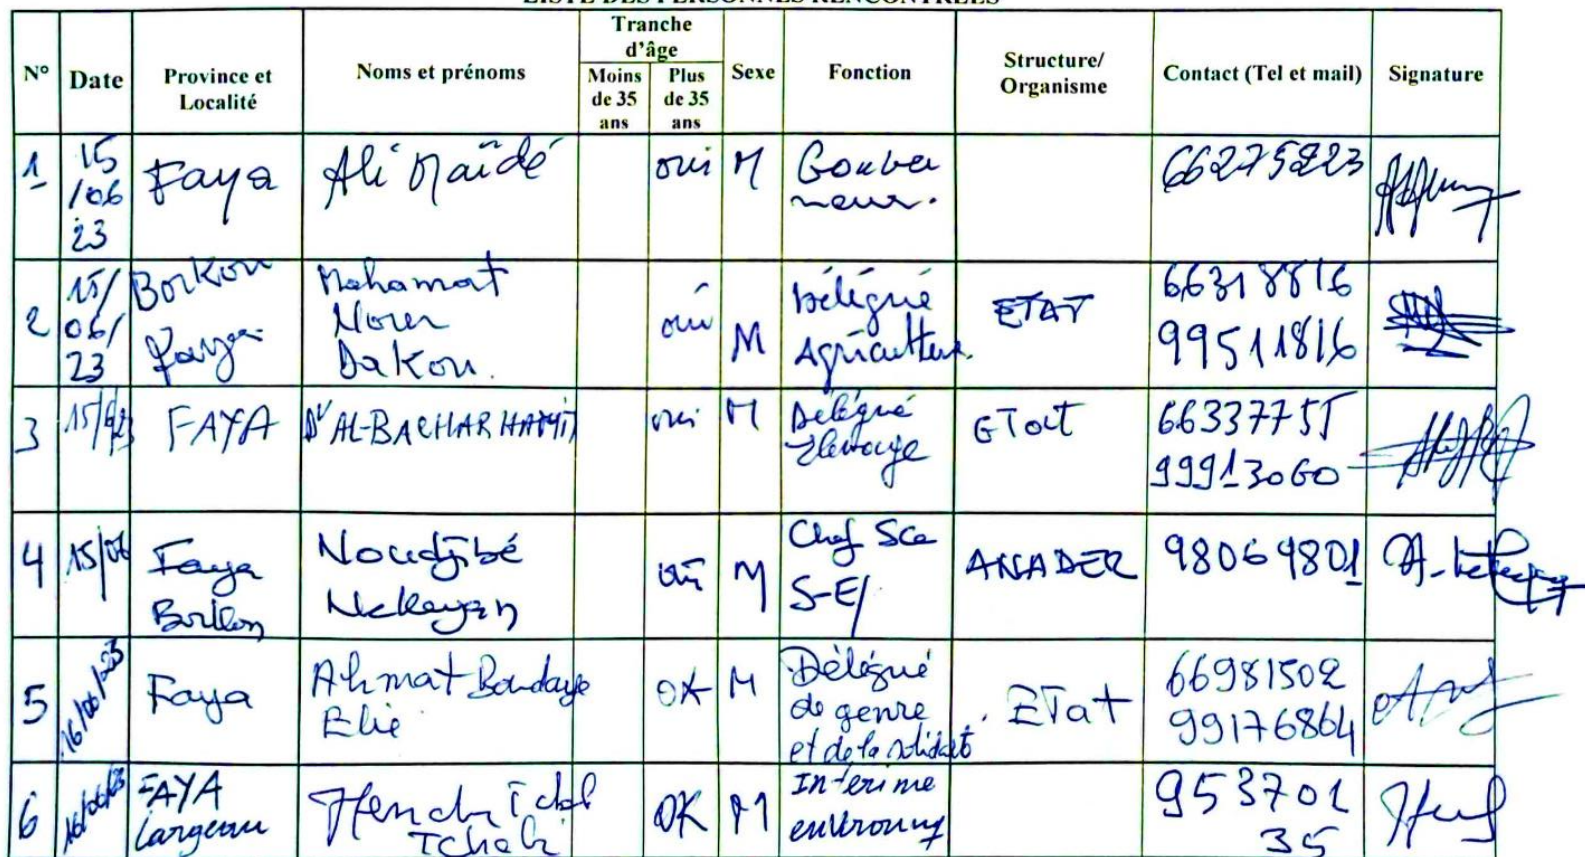 LISTE DES PERSONNES RENCONTREES
N° Date Province et Localité Noms et prénoms Tranche d'âge Moins de 35 ans Plus de 35 ans Sexe Fonction Structure/ Organisme Contact (Tel et mail) Signature
1 15/06 23 Faya Ali oui M Gouverneur. 66275223
2 15/06/23 Borkou Faya Mahamat Nour Dakou. oui M Délégué Agriculture ETAT 66318816 99511816
3 FAYA Dr AL-BACHAR oui M Délégué Elevage ETat 66337755 99913060
4 15/06 Faya Borkou Noudjibé oui M Chef Sce S-E/ ANADER 98069801
5 16/06/23 Faya Ahmat Elie OK M Délégué de genre et de la ETat 66981502 99176864
6 16/06/23 FAYA Largeau OK M Interime 953701 35